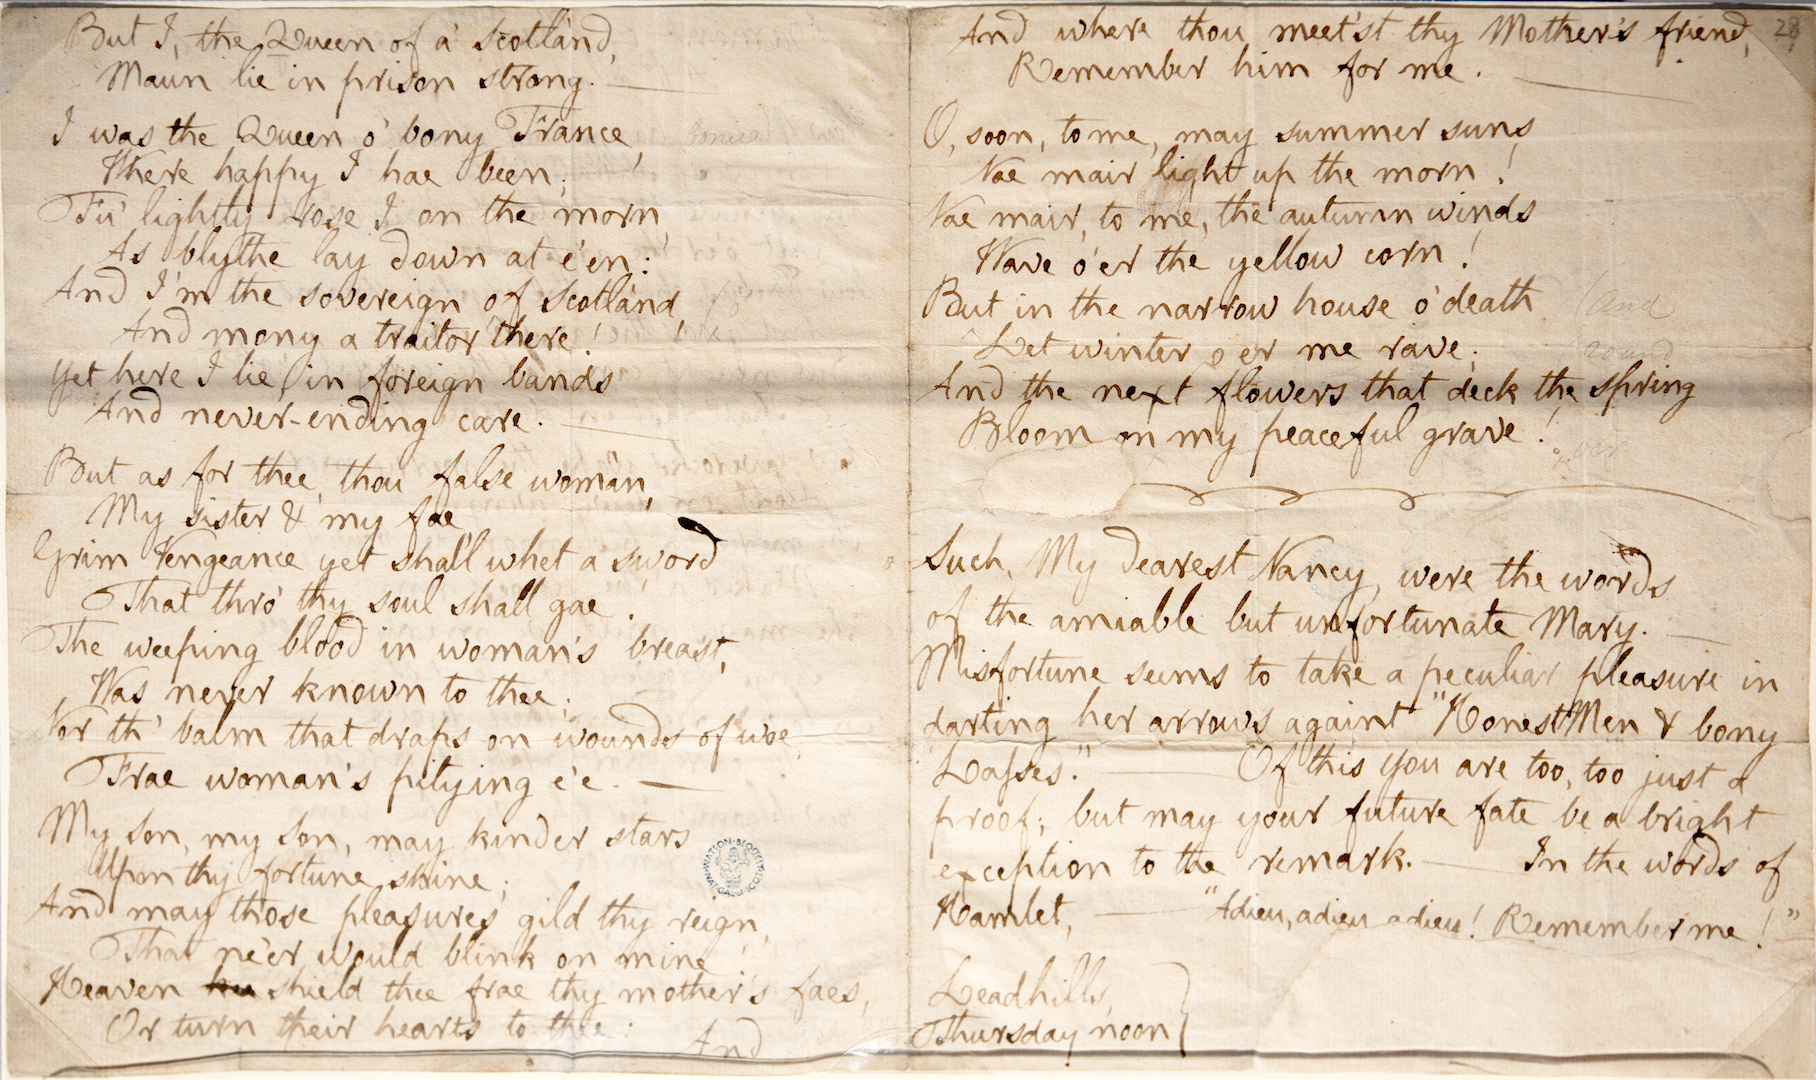 But I, the Queen of a' Scotland,
Maun lie in prison strong. —
I was the Queen o' bony France,
Where happy I hae been;
Fu' lightly rose I on the morn,
As blythe lay down at e'en:
And I'm the sovereign of Scotland,
And mony a traitor there!
Yet here I lie in foreign bands
And never-ending care. —
But as for thee, thou false woman,
My sister & my fae,
Grim Vengeance yet shall whet a sword
That thro' thy soul shall gae.
The weeping blood in woman's breast,
Was never known to thee;
Nor th' balm that draps on wounds of woe
Frae woman's pitying e'e. —
My Son, my Son, may kinder stars
Upon thy fortune shine;
And may those pleasures gild thy reign,
That ne'er would blink on mine!
Heaven shield thee frae thy mother's faes,
Or turn their hearts to thee:
And
28
And where thou meet'st thy Mother's friend,
Remember him for me. —
O, soon, to me, may summer suns
Nae mair light up the morn!
Nae mair, to me, the autumn winds
Wave o'er the yellow corn!
But in the narrow house o' death
Let winter o'er me rave;
And the next flowers that deck the spring
Bloom on my peaceful grave!
Such, My dearest Nancy, were the words
of the amiable but unfortunate Mary. —
Misfortune seems to take a peculiar pleasure in
darting her arrows againt "Honest Men & bony
Lasses." — Of this you are too, too just a
proof; but may your future fate be a bright
exception to the remark. — In the words of
Hamlet, — "Adieu, adieu, adieu! Remember me!"
Leadhills,
Thursday noon